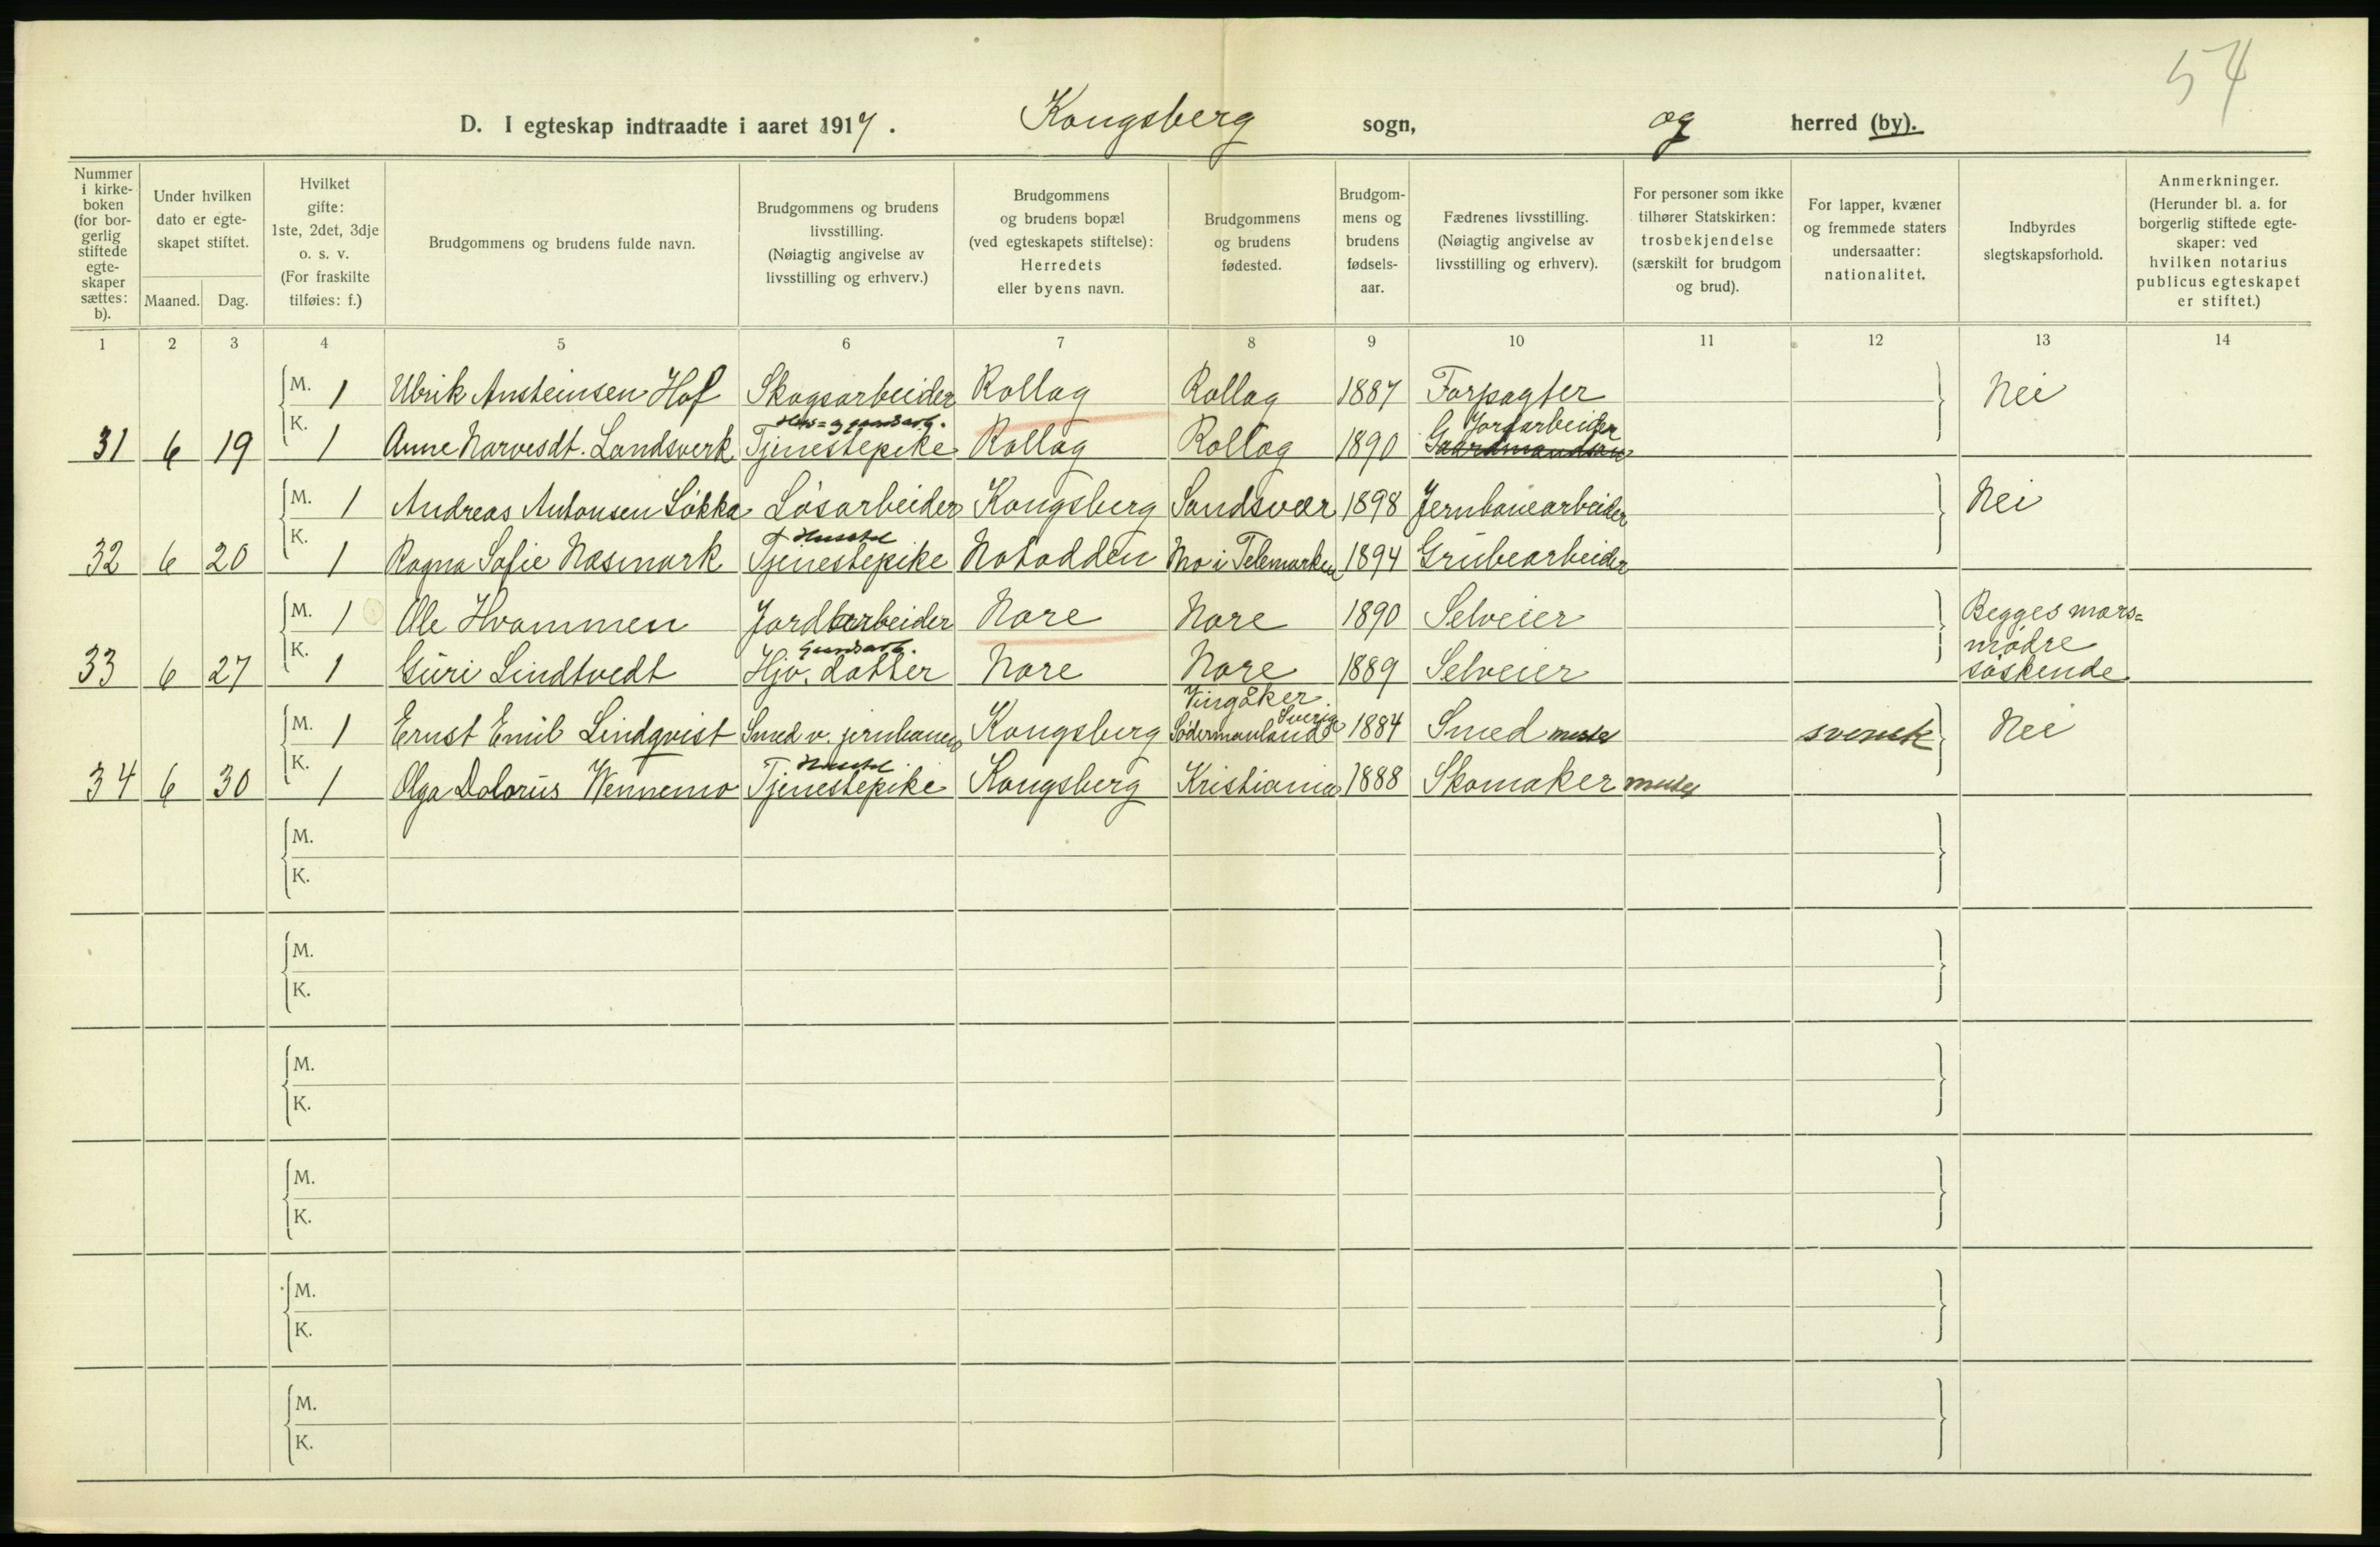 54
D. I egteskap indtraadte i aaret 1917. Kongsberg sogn, og herred (by).
Nummer i kirkeboken (for borgerlig stiftede egteskaper sættes: b).
Under hvilken dato er egteskapet stiftet.
Maaned. Dag.
Hvilket gifte: 1ste, 2det, 3dje o. s. v. (For fraskilte tilføies: f.)
Brudgommens og brudens fulde navn.
Brudgommens og brudens livsstilling. (Nøiagtig angivelse av livsstilling og erhverv.)
Brudgommens og brudens bopæl (ved egteskapets stiftelse): Herredets eller byens navn.
Brudgommens og brudens fødested.
Brudgommens og brudens fødselsaar.
Fædrenes livsstilling. (Nøiagtig angivelse av livsstilling og erhverv).
For personer som ikke tilhører Statskirken: trosbekjendelse (særskilt for brudgom og brud).
For lapper, kvæner og fremmede staters undersaatter: nationalitet.
Indbyrdes slegtskapsforhold.
Anmerkninger. (Herunder bl. a. for borgerlig stiftede egteskaper: ved hvilken notarius publicus egteskapet er stiftet.)
1 2 3 4 5 6 7 8 9 10 11 12 13 14
M. 1 Ulrik Ansteinsen Hof Skogsarbeider Rollag Rollag 1887 Forpagter Nei
Hus= g gaardsarb. Jordarbeider
31 6 19 K. 1 Anne Narvesdt. Landsverk Tjenestepike Rollag Rollag 1890
M. 1 Andreas Antonsen Løkka Løsarbeider Kongsberg Sandsvær 1898 Jernbanearbeider Nei
Husstel
32 6 20 K. 1 Ragna Sofie Næsmark Tjenestepike Notodden Mo i Telemarken 1894 Grubearbeider
M. 1 Ole Hvammen Jordarbeider Nore Nore 1890 Selveier Begges mors=
mødre
Gaardsarb.
33 6 27 K. 1 Guri Lindtvedt Hjv. datter Nore Nore 1889 Selveier søskende
Vingåker
Sverige
M. 1 Ernst Emil Lindqvist Smed v. jernbanen Kongsberg Södermanland 1884 Smed mester svensk Nei
Husstel
34 6 30 K. 1 Olga Dolorus Wennemo Tjenestepike Kongsberg Kristiania 1888 Skomaker mester
M.
K.
M.
K.
M.
K.
M.
K.
M.
K.
M.
K.